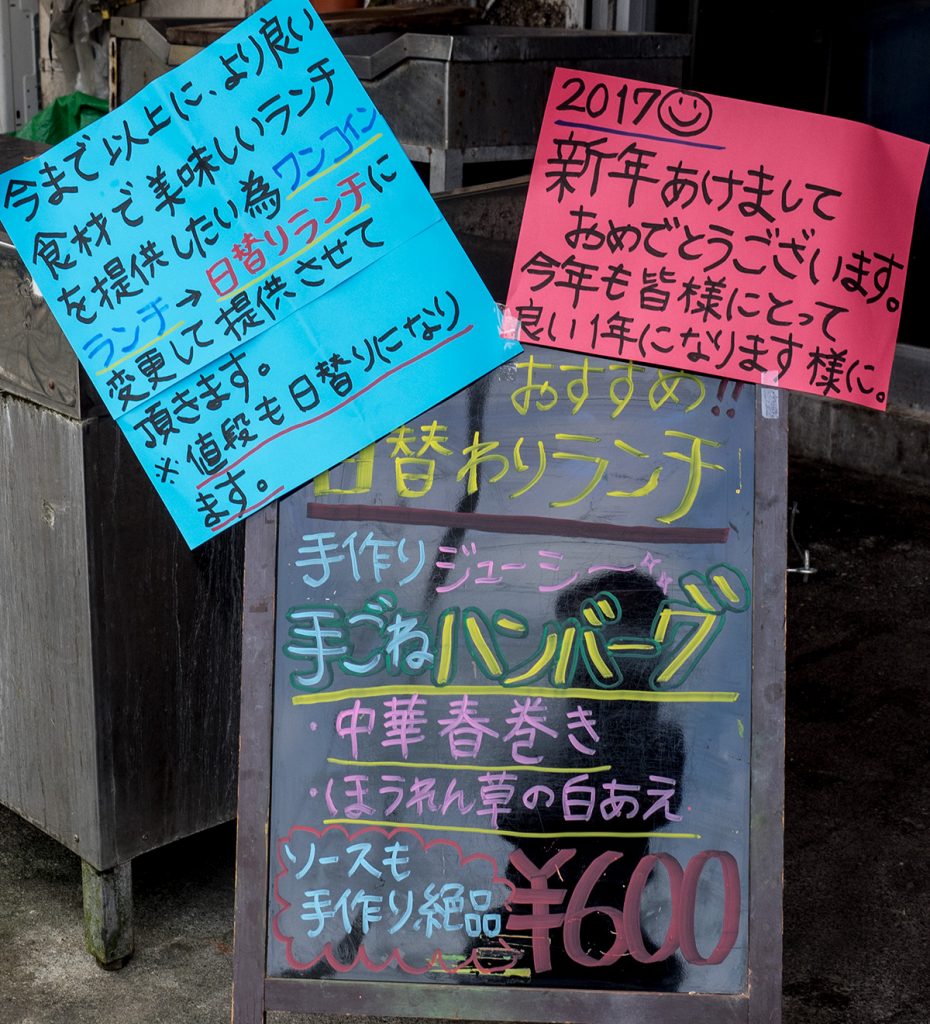 今まで以上に、より良い
食材で美味しいランチ
を提供したい為ワンコイン
ランチ→日替りランチに
変更して提供させて
頂きます。
※値段も日替りになり
ます。
2017
新年あけまして
おめでとうございます。
今年も皆様にとって
良い1年になります様に。
おすすめ!!
日替わりランチ
手作りジューシ〜
手ごねハンバーグ
・中華春巻き
・ほうれん草の白あえ
ソースも
手作り絶品
¥600